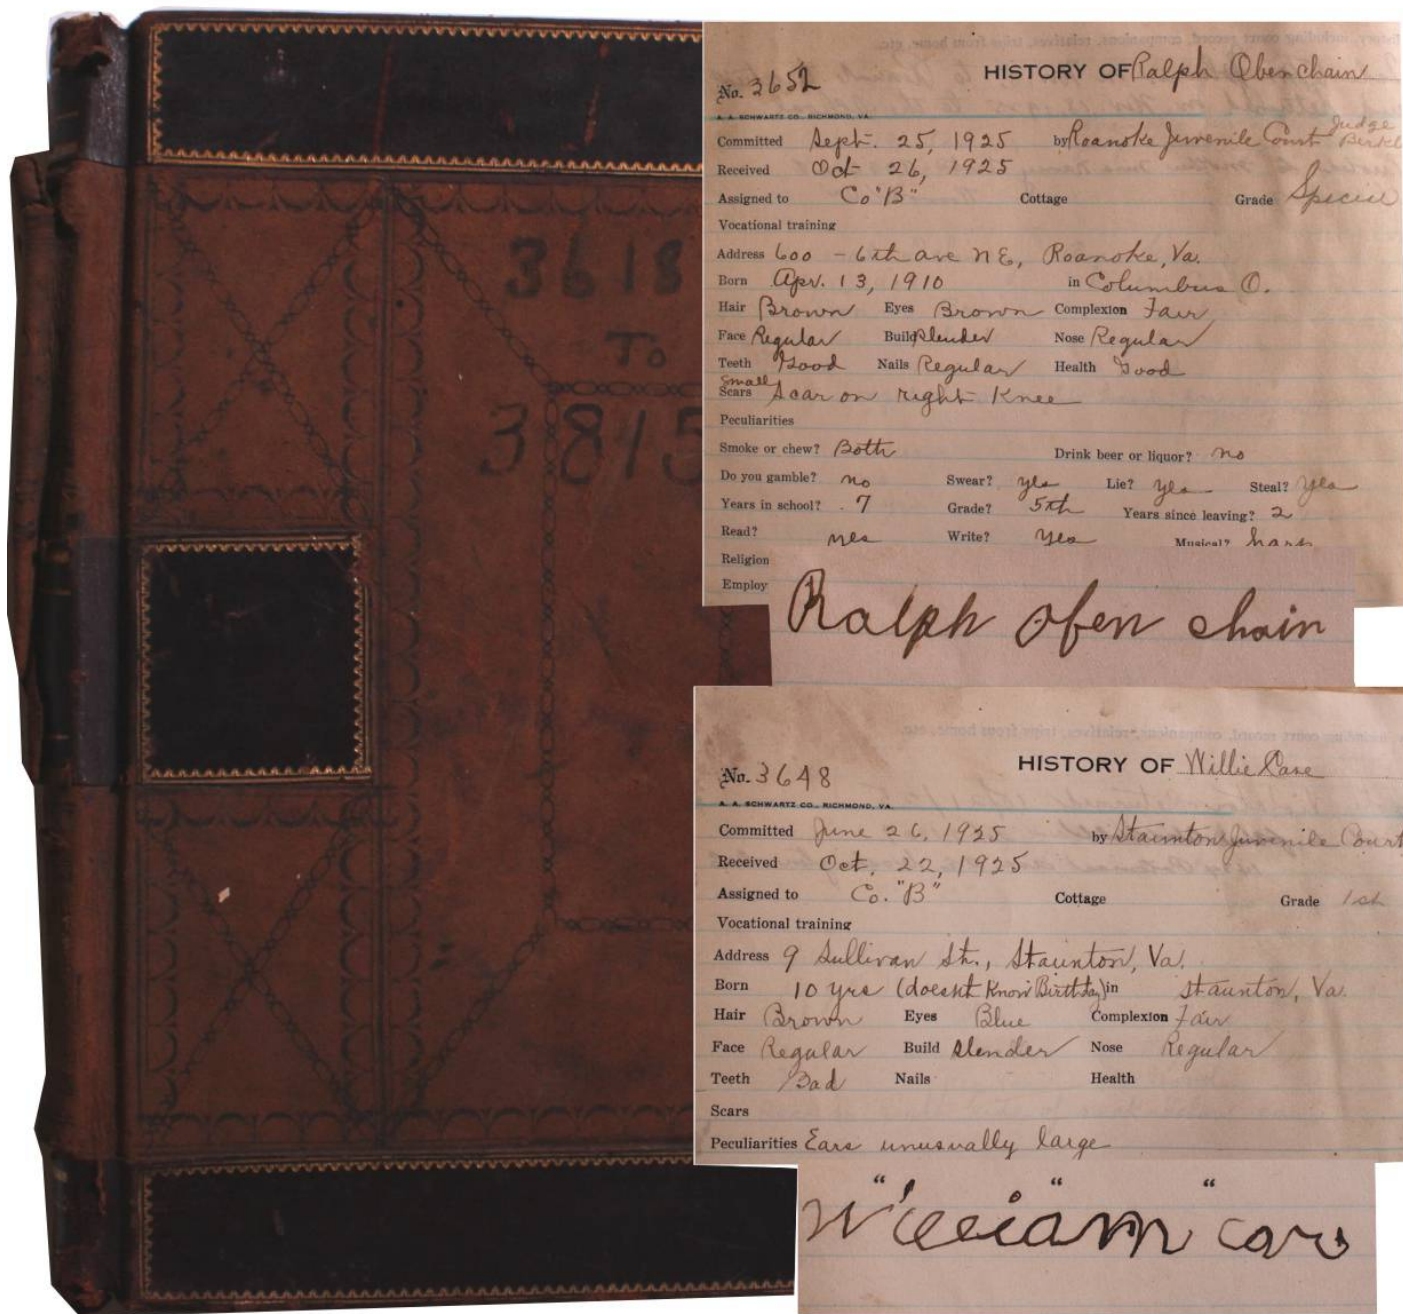 3618
To
3815
HISTORY OF Ralph Obenchain
No. 3652
A. A. SCHWARTZ CO., RICHMOND, VA.
Judge
Committed Sept. 25, 1925 by Roanoke Juvenile Court
Received Oct 26, 1925
Assigned to Co "B" Cottage Grade Special
Vocational training
Address 600 - 6th ave NE, Roanoke, Va.
Born Apr. 13, 1910 in Columbus O.
Hair Brown Eyes Brown Complexion Fair
Face Regular Build Slender Nose Regular
Teeth Good Nails Regular Health Good
Small
Scars Scar on right Knee
Peculiarities
Smoke or chew? Both Drink beer or liquor? no
Do you gamble? no Swear? yes Lie? yes Steal? yes
Years in school? 7 Grade? 5th Years since leaving? 2
Read? yes Write? yes Musical? harp
Religion
Employ
Ralph Oben chain
HISTORY OF Willie Care
No. 3648
A. A. SCHWARTZ CO., RICHMOND, VA.
Committed June 26, 1925 by Staunton Juvenile Court
Received Oct, 22, 1925
Assigned to Co. "B" Cottage Grade 1st
Vocational training
Address 9 Sullivan St., Staunton, Va.
Born 10 yrs (doesnt Know Birthday) in Staunton, Va.
Hair Brown Eyes Blue Complexion Fair
Face Regular Build Slender Nose Regular
Teeth Bad Nails Health
Scars
Peculiarities Ears unusually large